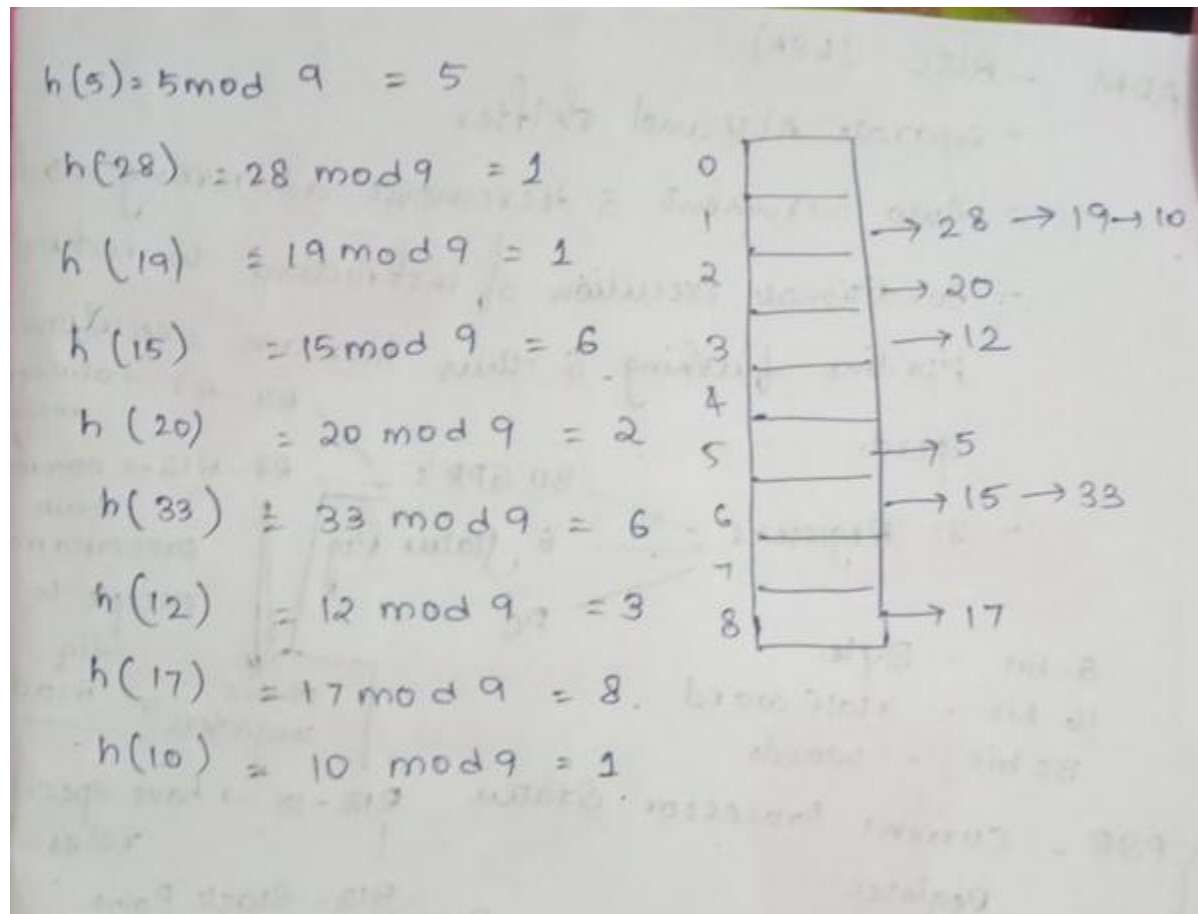 h(5) = 5 mod 9 = 5
h(28) = 28 mod 9 = 1
h(19) = 19 mod 9 = 1
h(15) = 15 mod 9 = 6
h(20) = 20 mod 9 = 2
h(33) = 33 mod 9 = 6
h(12) = 12 mod 9 = 3
h(17) = 17 mod 9 = 8.
h(10) = 10 mod 9 = 1
0
1 → 28 → 19 → 10
2 → 20
3 → 12
4
5 → 5
6 → 15 → 33
7
8 → 17